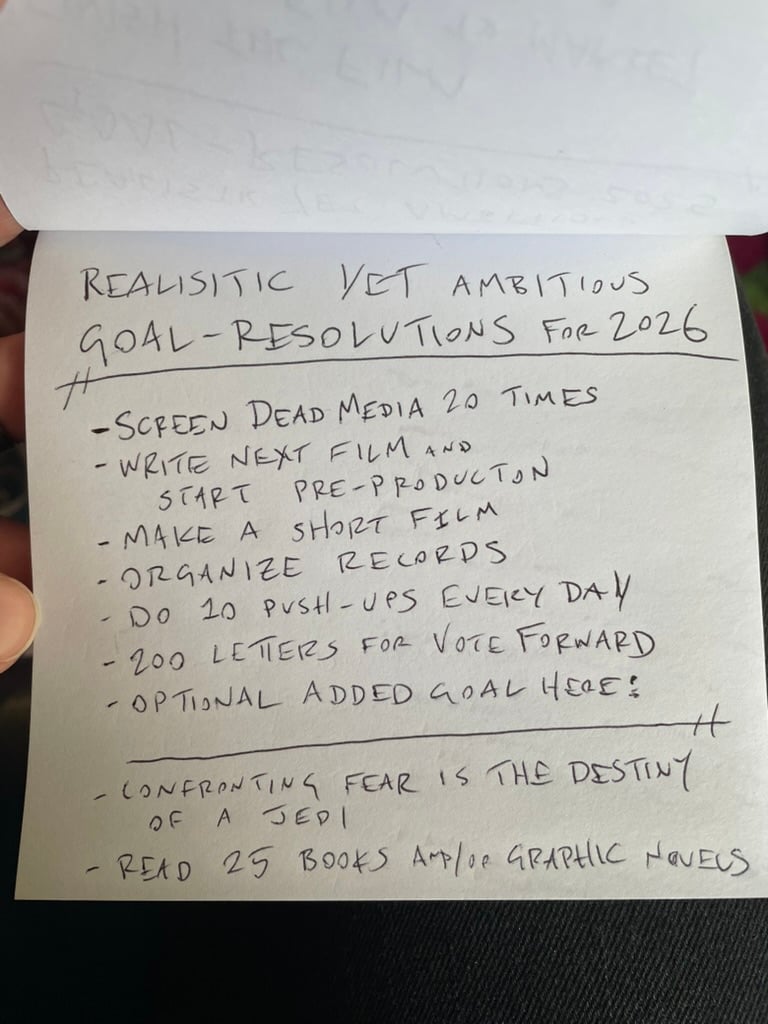 REALISITIC YET AMBITIOUS
GOAL-RESOLUTIONS FOR 2026
- SCREEN DEAD MEDIA 20 TIMES
- WRITE NEXT FILM AND
START PRE-PRODUCTON
- MAKE A SHORT FILM
- ORGANIZE RECORDS
- DO 10 PUSH-UPS EVERY DAY
- 200 LETTERS FOR VOTE FORWARD
- OPTIONAL ADDED GOAL HERE:
- CONFRONTING FEAR IS THE DESTINY
OF A JEDI
- READ 25 BOOKS AND/OR GRAPHIC NOVELS